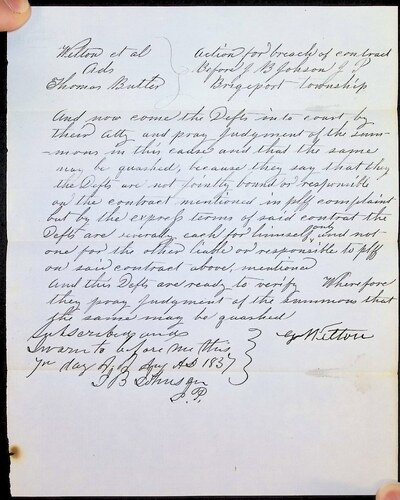 Welton et al
Ads
Thomas Butler
Action for breach of contract
Before J B Johson J P
Brigeport township
And now come the Defts into court by
their Atty and pray Judgment of the sum-
mons in this cause and that the same
may be quashed, because they say that they
the Defts are not jointly bound or responsible
on the contract mentioned in plff complaint
but by the express terms of said contract the
Defts are severally each for himself only and not
one for the other liable or responsible to plff
on said contract above, mentioned
And this Defts are ready to verify Wherefore
they pray Judgment of the summons that
the same may be quashed
Subscribed and
Sworn to before me this
7th day of Aug AD 1857
J B Johnson
J. P.
Welton